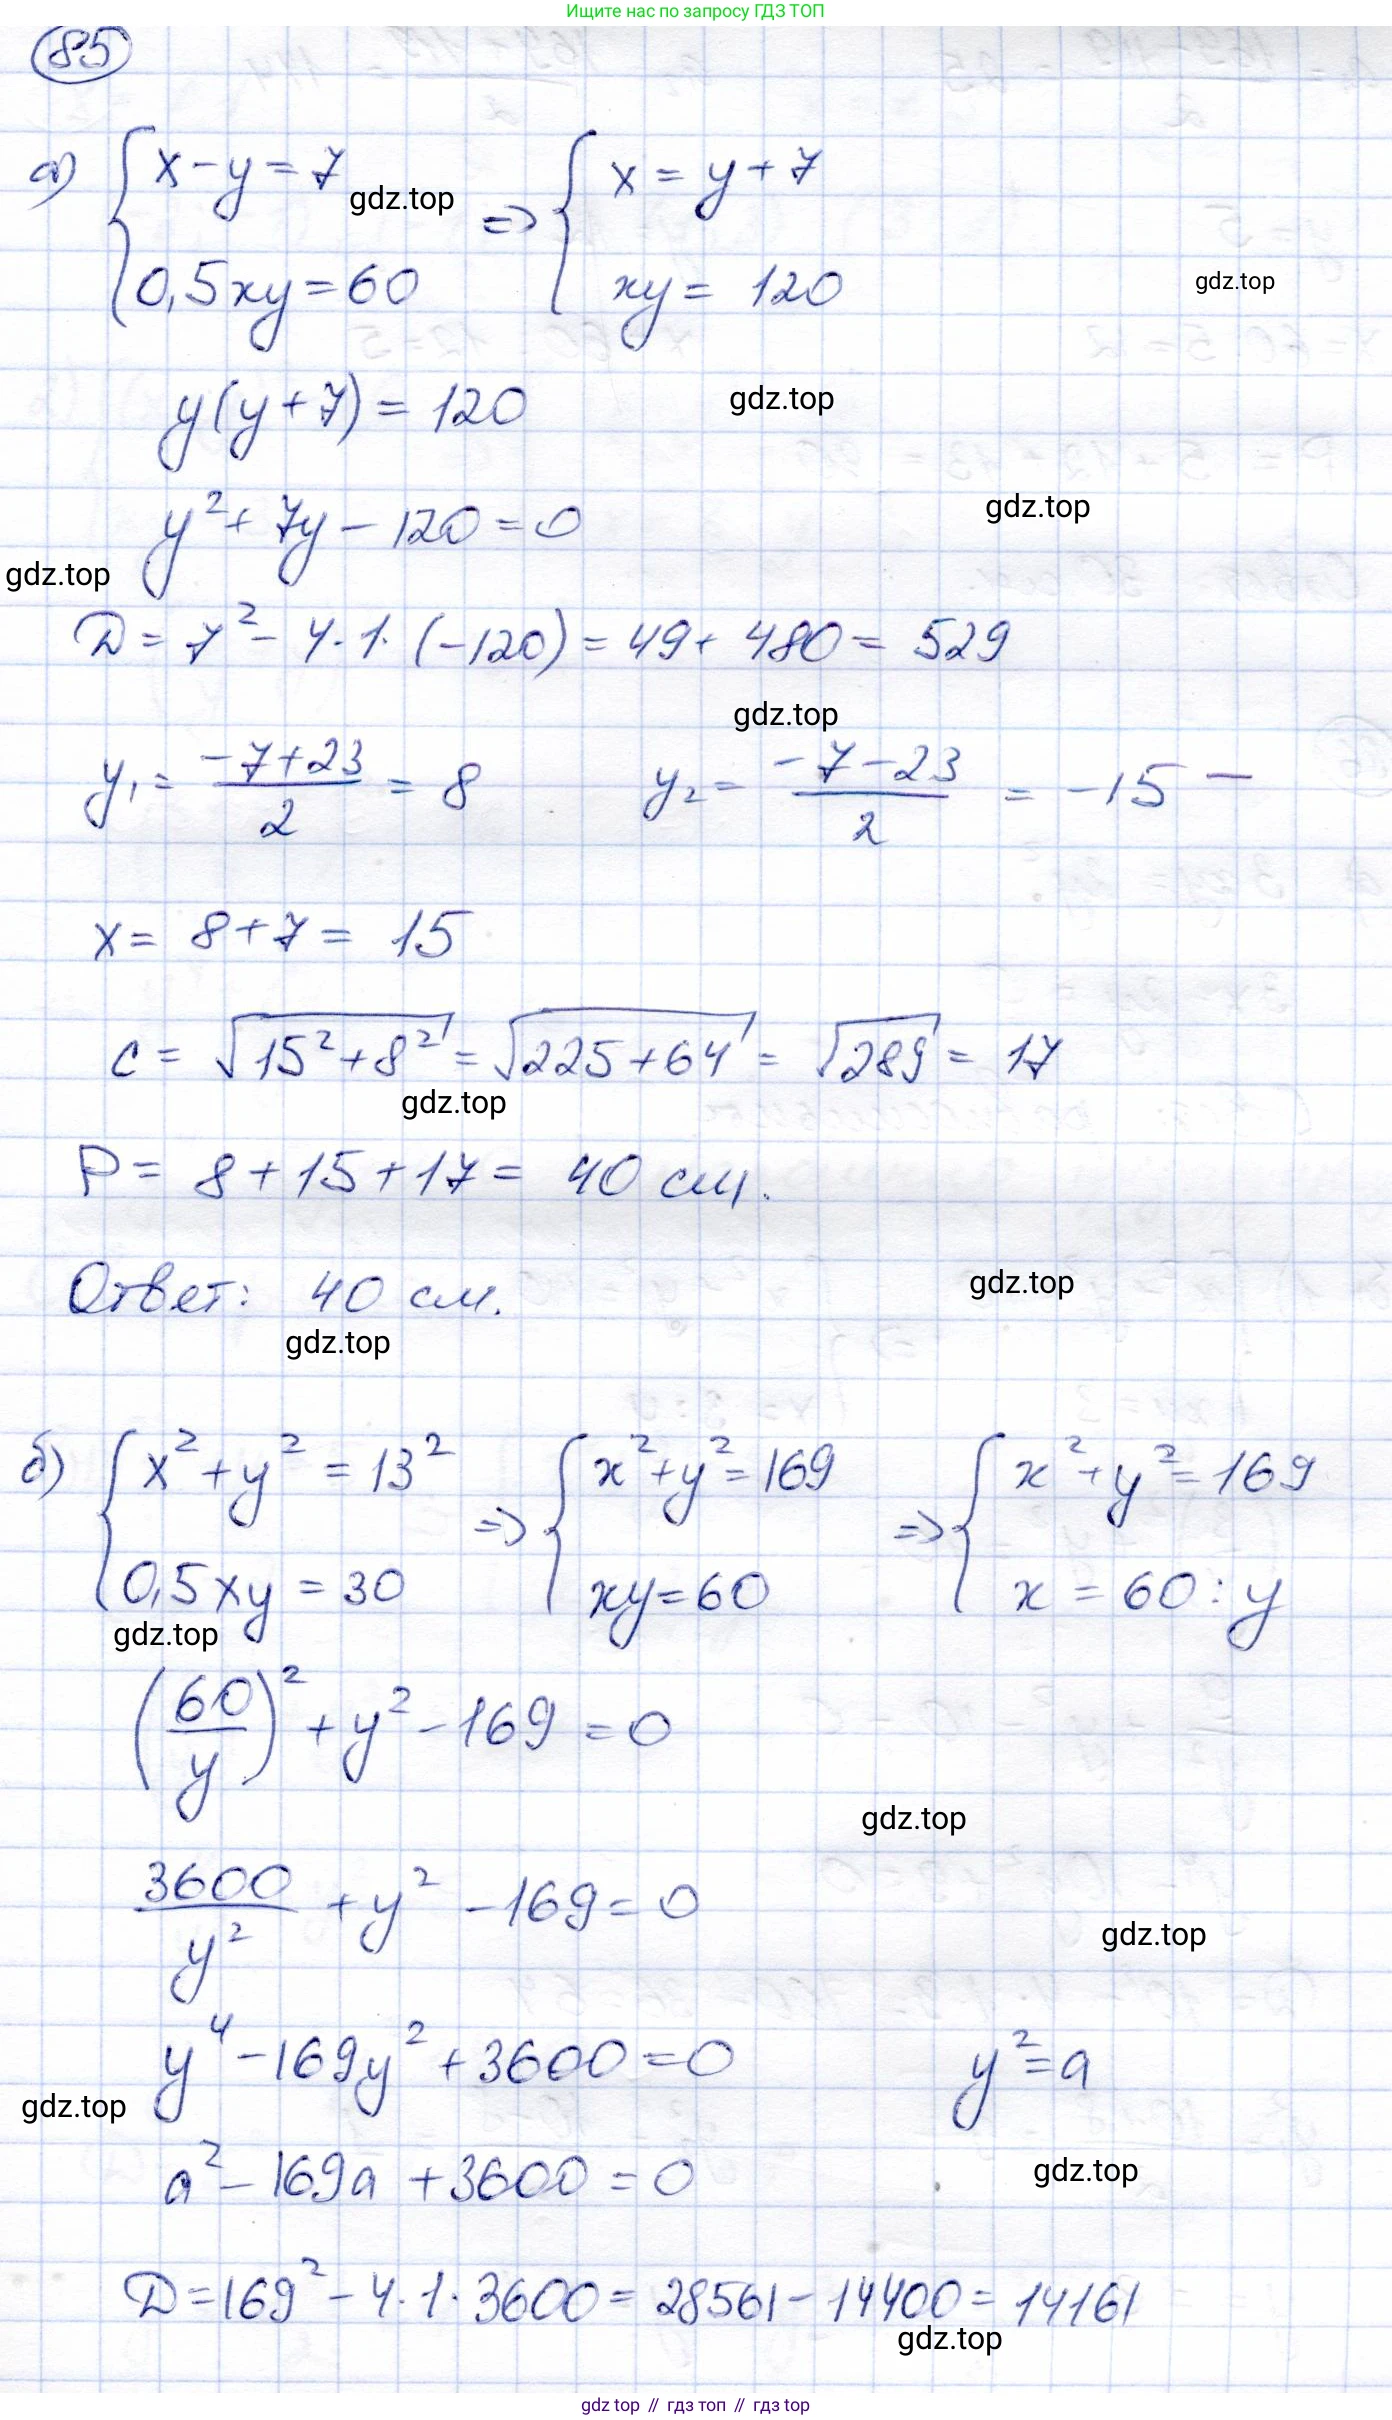 Ищите нас по запросу ГДЗ ТОП
85
а) { x - y = 7 => { x = y + 7
gdz.top
0,5xy = 60 xy = 120
gdz.top
y(y + 7) = 120
gdz.top
y² + 7y - 120 = 0
gdz.top
gdz.top
D = 7² - 4·1·(-120) = 49 + 480 = 529
gdz.top
y₁ = (-7+23)/2 = 8 y₂ = (-7-23)/2 = -15 –
x = 8 + 7 = 15
c = √(15² + 8²) = √(225 + 64) = √289 = 17
gdz.top
P = 8 + 15 + 17 = 40 см.
Ответ: 40 см.
gdz.top
gdz.top
б) { x² + y² = 13² => { x² + y² = 169 => { x² + y² = 169
0,5xy = 30 xy = 60 x = 60 : y
gdz.top
(60/y)² + y² - 169 = 0
gdz.top
3600/y² + y² - 169 = 0
gdz.top
y⁴ - 169y² + 3600 = 0 y² = a
gdz.top
a² - 169a + 3600 = 0
gdz.top
D = 169² - 4·1·3600 = 28561 - 14400 = 14161
gdz.top
gdz top // гдз топ // гдз top